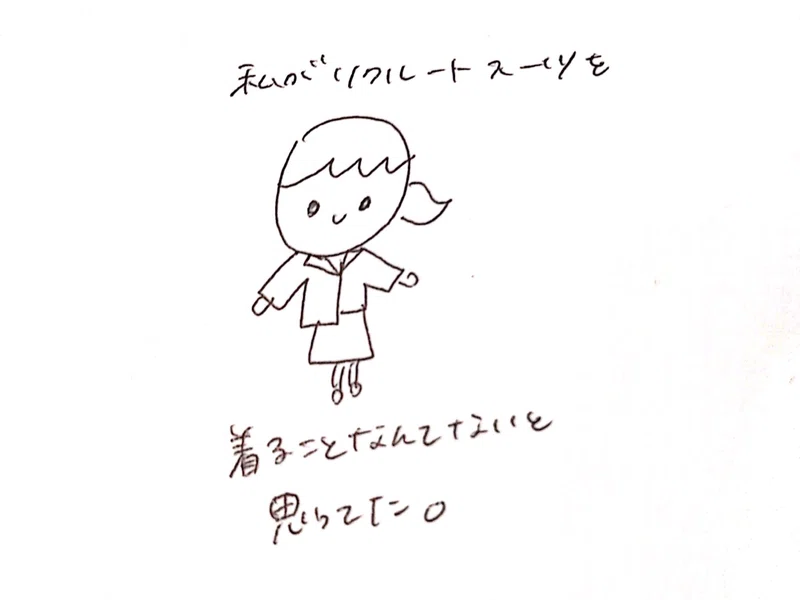 私がリクルートスーツを
着ることなんてないと
思ってた。